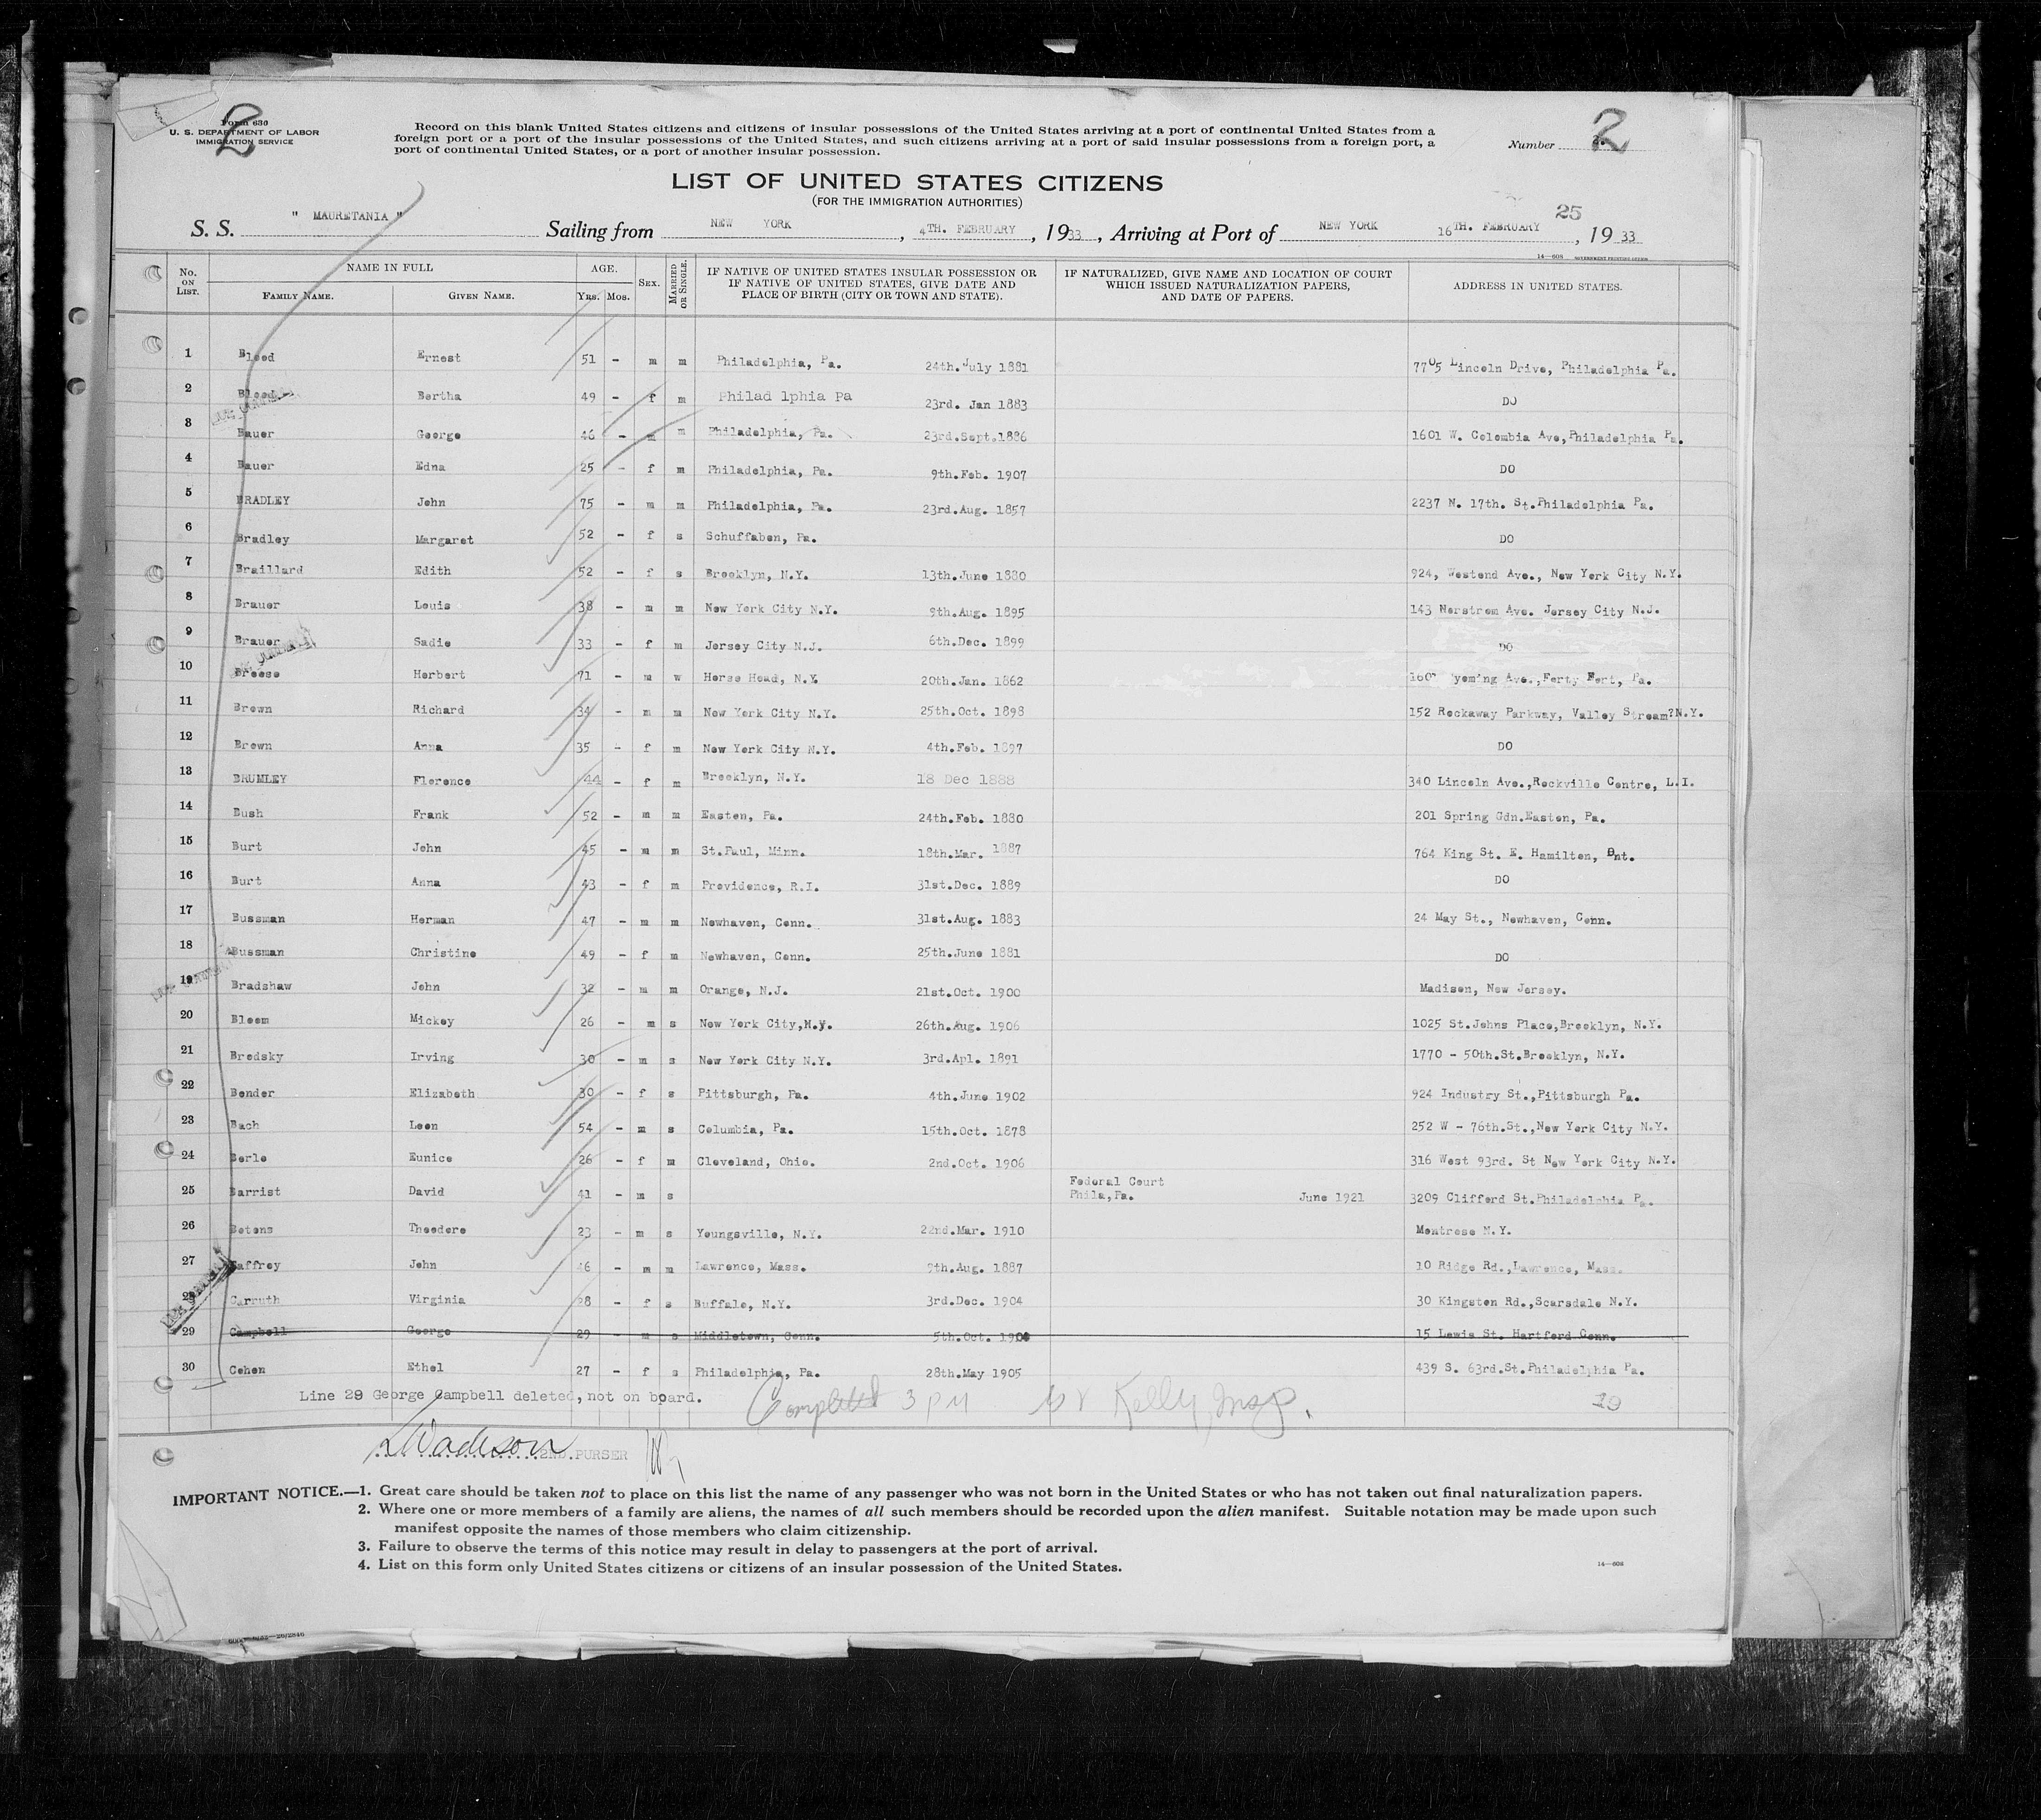 2
Form 630
U. S. DEPARTMENT OF LABOR
IMMIGRATION SERVICE
Record on this blank United States citizens and citizens of insular possessions of the United States arriving at a port of continental United States from a
foreign port or a port of the insular possessions of the United States, and such citizens arriving at a port of said insular possessions from a foreign port, a
port of continental United States, or a port of another insular possession.
Number 2
LIST OF UNITED STATES CITIZENS
(FOR THE IMMIGRATION AUTHORITIES)
S. S. " MAURETANIA " Sailing from NEW YORK, 4TH. FEBRUARY, 1933, Arriving at Port of NEW YORK 16TH. FEBRUARY 25, 1933
14—608 GOVERNMENT PRINTING OFFICE
No. ON LIST. NAME IN FULL FAMILY NAME. GIVEN NAME. AGE. Yrs. Mos. SEX. MARRIED OR SINGLE. IF NATIVE OF UNITED STATES INSULAR POSSESSION OR IF NATIVE OF UNITED STATES, GIVE DATE AND PLACE OF BIRTH (CITY OR TOWN AND STATE). IF NATURALIZED, GIVE NAME AND LOCATION OF COURT WHICH ISSUED NATURALIZATION PAPERS, AND DATE OF PAPERS. ADDRESS IN UNITED STATES.
1 Blood Ernest 51 - m m Philadelphia, Pa. 24th.July 1881 7705 Lincoln Drive, Philadelphia Pa.
2 Blood Bertha 49 - f m Philad lphia Pa 23rd. Jan 1883 DO
3 Bauer George 46 - m m Philadelphia, Pa. 23rd.Sept.1886 1601 W. Colombia Ave,Philadelphia Pa.
4 Bauer Edna 25 - f m Philadelphia, Pa. 9th.Feb. 1907 DO
5 BRADLEY John 75 - m m Philadelphia, Pa. 23rd.Aug. 1857 2237 N. 17th. St.Philadelphia Pa.
6 Bradley Margaret 52 - f s Schuffaben, Pa. DO
7 Braillard Edith 52 - f s Brooklyn, N.Y. 13th.June 1880 924, Westend Ave., New York City N.Y.
8 Brauer Louis 38 - m m New York City N.Y. 9th.Aug. 1895 143 Norstrom Ave. Jersey City N.J.
9 Brauer Sadie 33 - f m Jersey City N.J. 6th.Dec. 1899 DO
10 Breese Herbert 71 - m w Horse Head, N.Y. 20th.Jan. 1862 Ave.,Forty Fort, Pa.
11 Brown Richard 34 - m m New York City N.Y. 25th.Oct. 1898 152 Rockaway Parkway, Valley Stream?N.Y.
12 Brown Anna 35 - f m New York City N.Y. 4th.Feb. 1897 DO
13 BRUMLEY Florence 44 - f m Brooklyn, N.Y. 18 Dec 1888 340 Lincoln Ave.,Rockville Centre, L.I.
14 Bush Frank 52 - m m Easton, Pa. 24th.Feb. 1880 201 Spring Gdn.Easton, Pa.
15 Burt John 45 - m m St.Paul, Minn. 18th.Mar. 1887 764 King St. E. Hamilton, Ont.
16 Burt Anna 43 - f m Providence, R.I. 31st.Dec. 1889 DO
17 Bussman Herman 47 - m m Newhaven, Conn. 31st.Aug. 1883 24 May St., Newhaven, Conn.
18 Bussman Christine 49 - f m Newhaven, Conn. 25th.June 1881 DO
19 Bradshaw John 32 - m m Orange, N.J. 21st.Oct. 1900 Madison, New Jersey.
20 Bloom Mickey 26 - m s New York City,N.Y. 26th.Aug. 1906 1025 St.Johns Place,Brooklyn, N.Y.
21 Brodsky Irving 30 - m s New York City N.Y. 3rd.Apl. 1891 1770 - 50th.St.Brooklyn, N.Y.
22 Bender Elizabeth 30 - f s Pittsburgh, Pa. 4th.June 1902 924 Industry St.,Pittsburgh Pa.
23 Bach Leon 54 - m s Columbia, Pa. 15th.Oct. 1878 252 W - 76th.St.,New York City N.Y.
24 Berle Eunice 26 - f m Cleveland, Ohio. 2nd.Oct. 1906 316 West 93rd. St New York City N.Y.
25 Barrist David 41 - m s Federal Court Phila,Pa. June 1921 3209 Clifford St.Philadelphia Pa.
26 Betens Theodore 23 - m s Youngsville, N.Y. 22nd.Mar. 1910 Montrose N.Y.
27 Caffrey John 46 - m m Lawrence, Mass. 9th.Aug. 1887 10 Ridge Rd.,Lawrence, Mass.
28 Carruth Virginia 28 - f s Buffalo, N.Y. 3rd.Dec. 1904 30 Kingston Rd.,Scarsdale N.Y.
29 Campbell George 29 - m s Middletown, Conn. 5th.Oct. 15 Lewis St. Hartford Conn.
30 Cohen Ethel 27 - f s Philadelphia, Pa. 28th.May 1905 439 S. 63rd.St.Philadelphia Pa.
Line 29 George Campbell deleted, not on board. Completed 3 PM Kelly, Insp. 29
2ND.PURSER
IMPORTANT NOTICE.—1. Great care should be taken not to place on this list the name of any passenger who was not born in the United States or who has not taken out final naturalization papers.
2. Where one or more members of a family are aliens, the names of all such members should be recorded upon the alien manifest. Suitable notation may be made upon such
manifest opposite the names of those members who claim citizenship.
3. Failure to observe the terms of this notice may result in delay to passengers at the port of arrival.
4. List on this form only United States citizens or citizens of an insular possession of the United States.
14—608